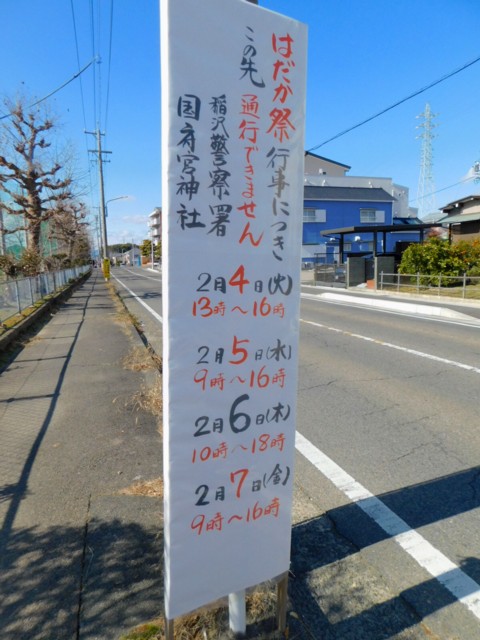 はだか祭行事につき
この先通行できません
稲沢警察署
国府宮神社
2月4日(火)
13時〜16時
2月5日(水)
9時〜16時
2月6日(木)
10時〜18時
2月7日(金)
9時〜16時